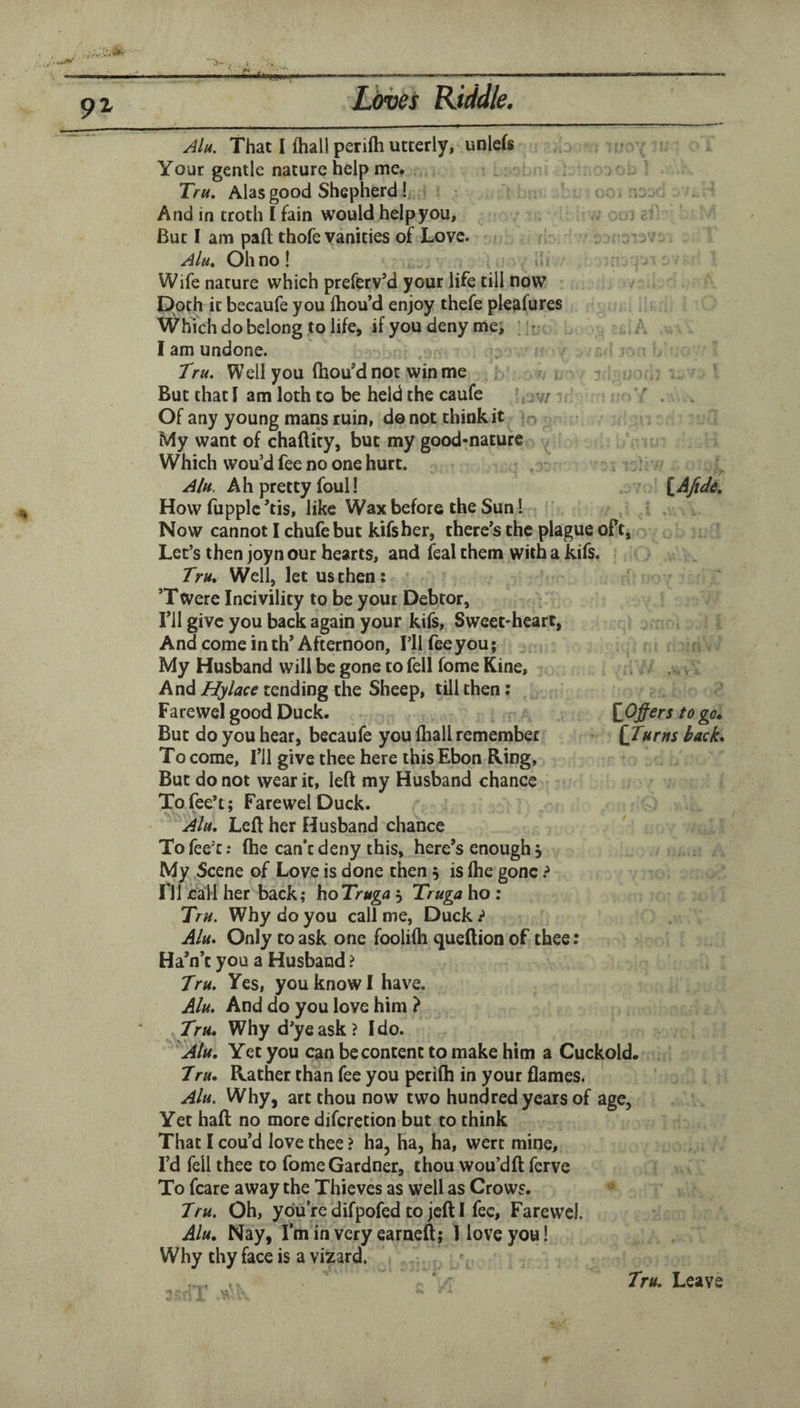 92 Loves Riddle.
Alu. That I ſhall periſh utterly, unleſs
Your gentle nature help me.
Tru. Alas good Shepherd!
And in troth I fain would help you,
But I am paſt thoſe vanities of Love.
Alu. Oh no!
Wiſe nature which preſerv'd your life till now
Doth it becauſe you ſhou'd enjoy theſe pleaſures
Which do belong to life, if you deny me,
I am undone.
Tru. Well you ſhou'd not win me
But that I am loth to be held the cauſe
Of any young mans ruin, do not think it
My want of chaſtity, but my good-nature
Which wou'd ſee no one hurt.
Alu. Ah pretty ſoul! [Aſide.
How ſupple 'tis, like Wax before the Sun!
Now cannot I chuſe but kiſs her, there's the plague of't,
Let's then joyn our hearts, and ſeal them with a kiſs.
Tru. Well, let us then:
'Twere Incivility to be your Debtor,
I'll give you back again your kiſs, Sweet-heart,
And come in th' Afternoon, I'll ſee you;
My Husband will be gone to ſell ſome Kine,
And Hylace tending the Sheep, till then:
Farewel good Duck. [Offers to go.
But do you hear, becauſe you ſhall remember [Turns back.
To come, I'll give thee here this Ebon Ring,
But do not wear it, leſt my Husband chance
To ſee't; Farewel Duck.
Alu. Leſt her Husband chance
To ſee't: ſhe can't deny this, here's enough;
My Scene of Love is done then; is ſhe gone?
I'll call her back; ho Truga; Truga ho:
Tru. Why do you call me, Duck?
Alu. Only to ask one fooliſh queſtion of thee:
Ha'n't you a Husband?
Tru. Yes, you know I have.
Alu. And do you love him?
Tru. Why d'ye ask? I do.
Alu. Yet you can be content to make him a Cuckold.
Tru. Rather than ſee you periſh in your flames.
Alu. Why, art thou now two hundred years of age,
Yet haſt no more diſcretion but to think
That I cou'd love thee? ha, ha, ha, wert mine,
I'd ſell thee to ſome Gardner, thou wou'dſt ſerve
To ſcare away the Thieves as well as Crows.
Tru. Oh, you're diſpoſed to jeſt I ſee, Farewel.
Alu. Nay, I'm in very earneſt; I love you!
Why thy face is a vizard.
Tru. Leave